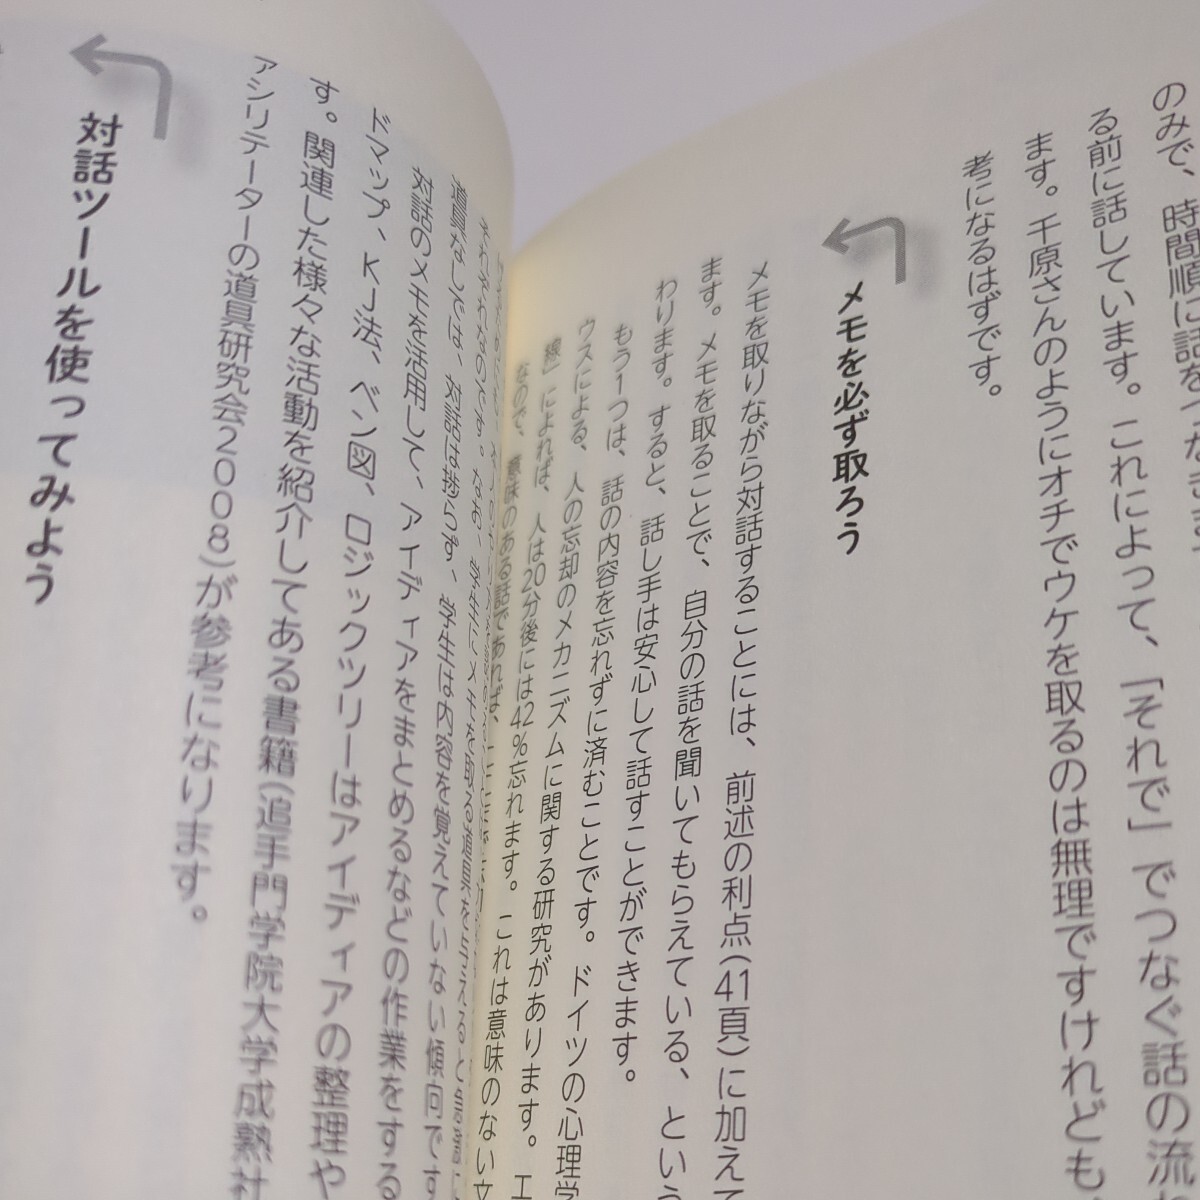 のみで、時間順に話をつなぎま
る前に話しています。これによって、「それで」でつなぐ話の流
ます。千原さんのようにオチでウケを取るのは無理ですけれども
考になるはずです。
メモを必ず取ろう
メモを取りながら対話することには、前述の利点(41頁)に加えて
ます。メモを取ることで、自分の話を聞いてもらえている、という
わります。すると、話し手は安心して話すことができます。
もう1つは、話の内容を忘れずに済むことです。ドイツの心理学
ウスによる、人の忘却のメカニズムに関する研究があります。エ
線」によれば、人は20分後には42%忘れます。これは意味のない文
なので、意味のある話であれば、
道具なしでは、対話は捗らず、学生は内容を覚えていない傾向です
対話のメモを活用して、アイディアをまとめるなどの作業をする
ドマップ、KJ法、ベン図、ロジックツリーはアイディアの整理や
す。関連した様々な活動を紹介してある書籍(追手門学院大学成熟社
ァシリテーターの道具研究会2008)が参考になります。
対話ツールを使ってみよう